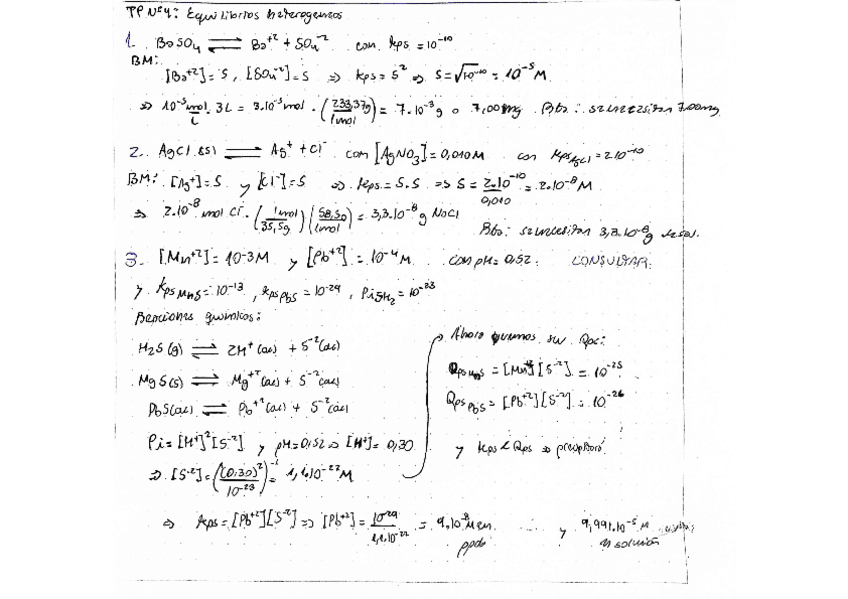 TP Nº4: Equilibrios heterogeneos
1. BaSO4 ⇌ Ba+2 + SO4-2 con kps = 10-10
BM:
[Ba+2] = S, [SO4-2] = S ⇒ kps = S2 ⇒ S = √10-10 = 10-5 M
⇒ 10-5 mol/L . 3L = 3.10-5 mol . (233,37g/1mol) = 7.10-3 g o 7,00mg Rta: se necesitan 7,00mg
2. AgCl (s) ⇌ Ag+ + Cl- con [AgNO3] = 0,010M con kpsAgCl = 2.10-10
BM: [Ag+] = S y [Cl-] = S ⇒ kps = S.S ⇒ S = 2.10-10/0,010 = 2.10-8 M
⇒ 2.10-8 mol Cl- . (1mol/35,5g) (58,50/1mol) = 3,3.10-8 g NaCl
Rta: se necesitan 3,3.10-8 g
3. [Mn+2] = 10-3M y [Pb+2] = 10-4 M con pH = 0,52. CONSULTAR.
y kpsMnS = 10-13, kpsPbS = 10-29, PiSH2 = 10-23
Reacciones químicas:
H2S (g) ⇌ 2H+ (ac) + S-2 (ac)
MgS (s) ⇌ Mg+2 (ac) + S-2 (ac)
PbS (ac) ⇌ Pb+2 (ac) + S-2 (ac)
Pi = [H+]2 [S-2] y pH = 0,52 ⇒ [H+] = 0,30
⇒ [S-2] = ((0,30)2/10-23)-1 = 1,1.10-22 M
Ahora su Qps:
QpsMnS = [Mn+2][S-2] = 10-25
QpsPbS = [Pb+2][S-2] = 10-26
y kps < Qps ⇒ precipitará
⇒ kps = [Pb+2][S-2] ⇒ [Pb+2] = 10-29/1,1.10-22 = 9.10-8 M en
ppdo
y 9,991.10-5 M
solución